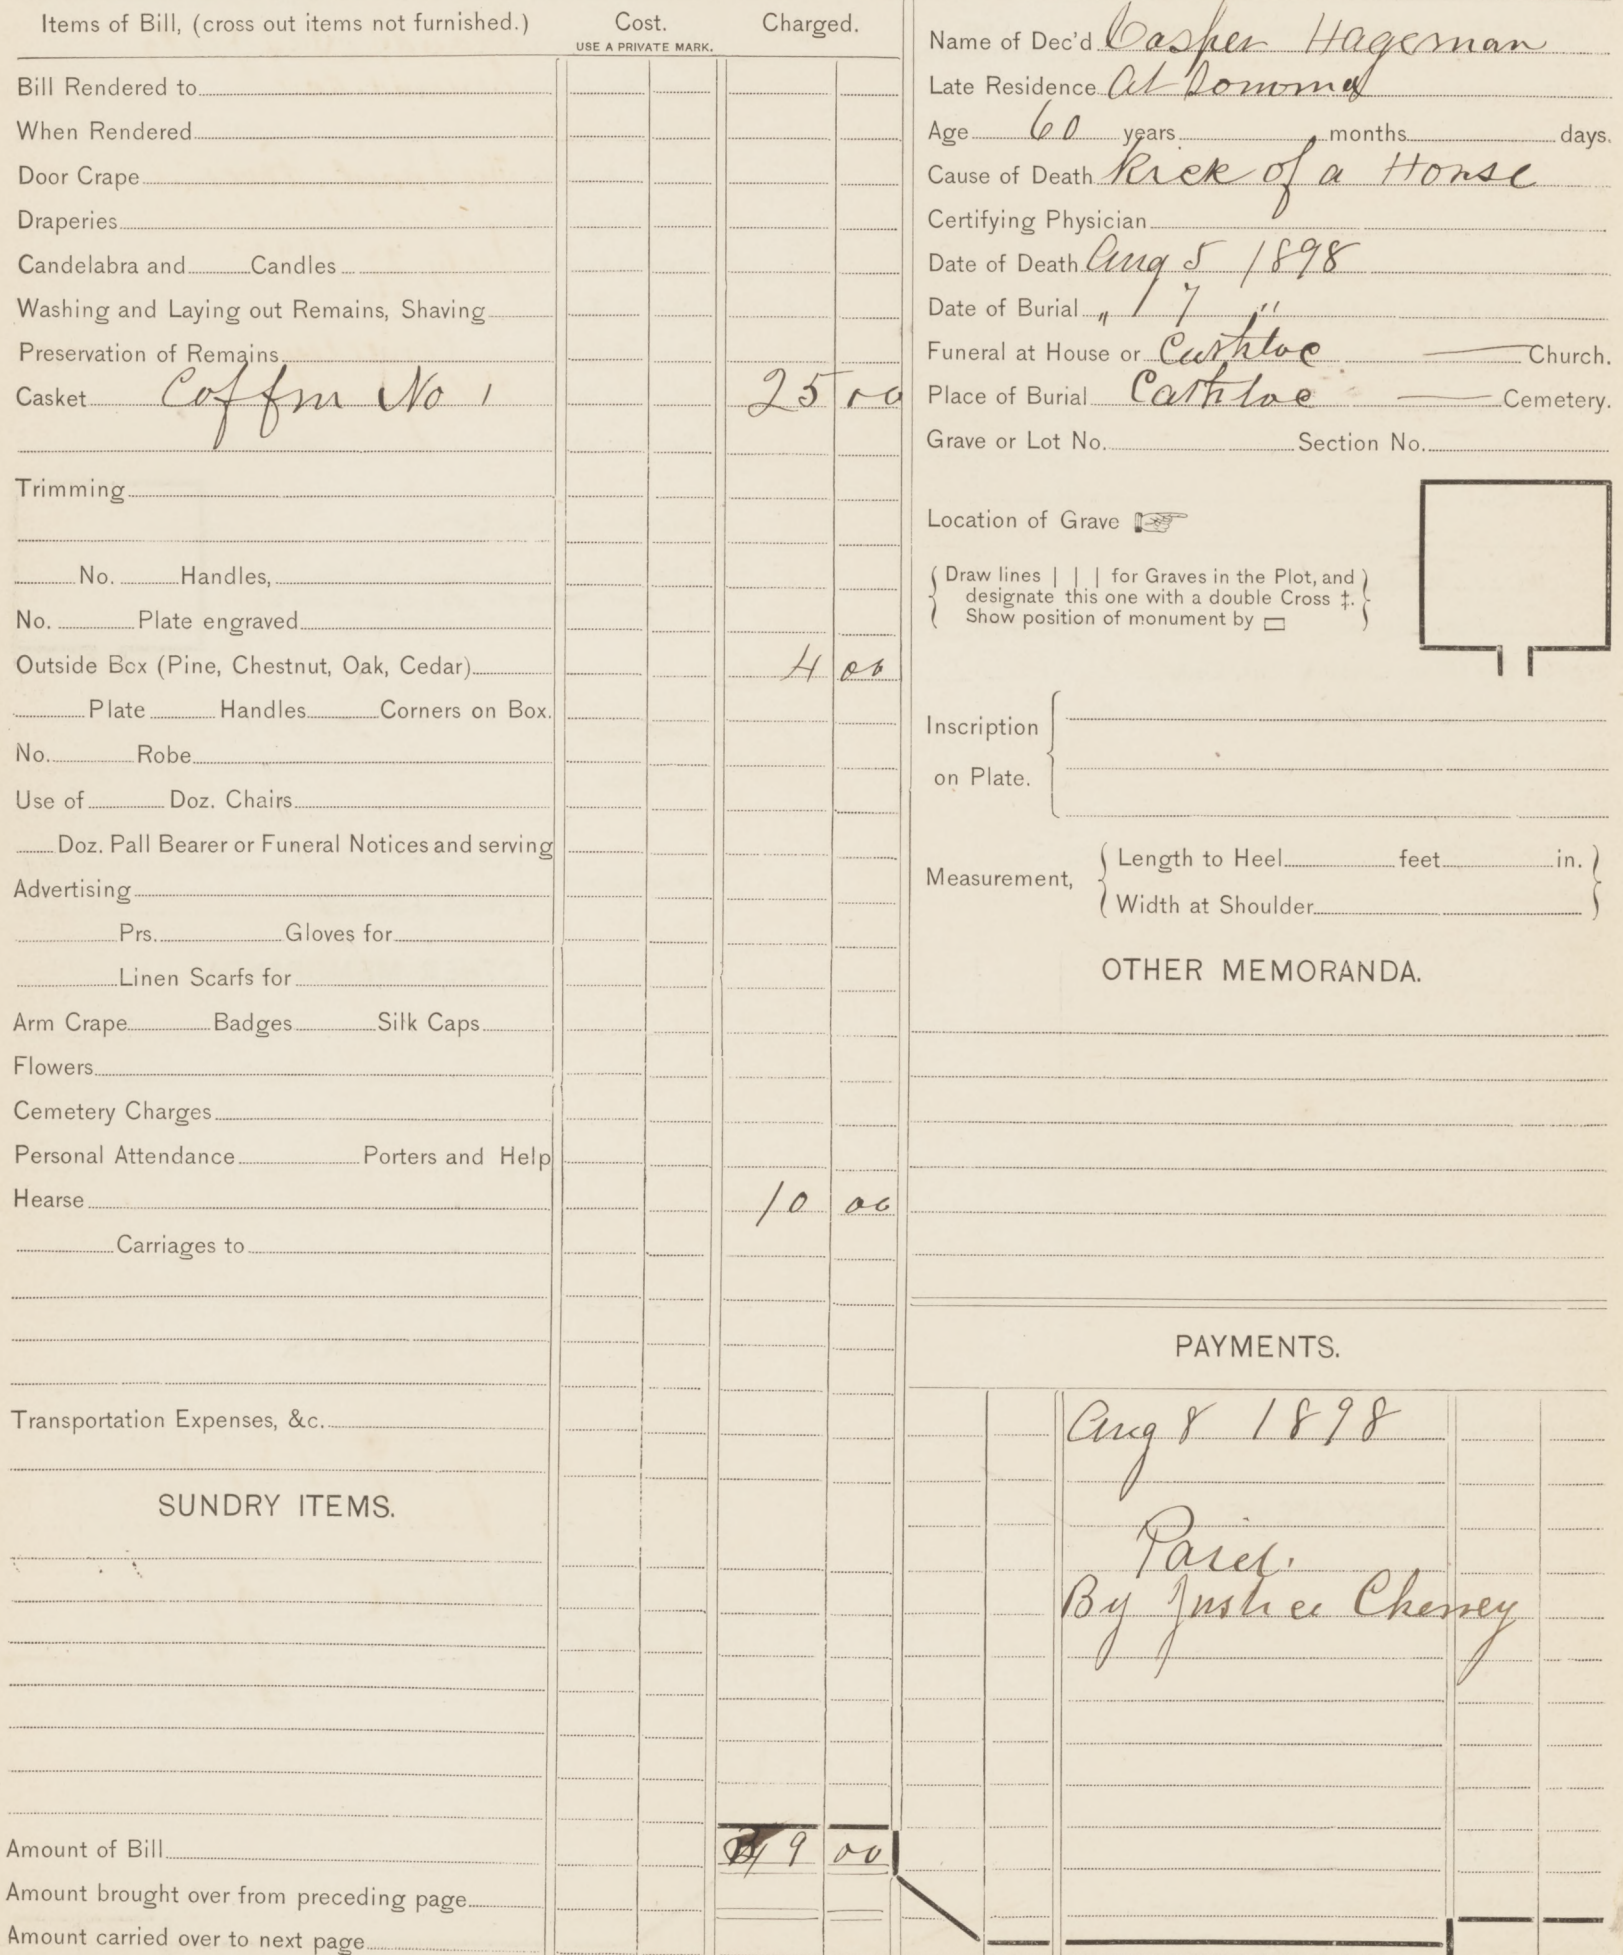 Items of Bill, (cross out items not furnished.) Cost. Charged.
USE A PRIVATE MARK.
Bill Rendered to
When Rendered
Door Crape
Draperies
Candelabra and Candles
Washing and Laying out Remains, Shaving
Preservation of Remains
Casket Coffin No 1 25 00
Trimming
No. Handles,
No. Plate engraved
Outside Box (Pine, Chestnut, Oak, Cedar) 4 00
Plate Handles Corners on Box.
No. Robe
Use of Doz. Chairs
Doz. Pall Bearer or Funeral Notices and serving
Advertising
Prs. Gloves for
Linen Scarfs for
Arm Crape Badges Silk Caps
Flowers
Cemetery Charges
Personal Attendance Porters and Help
Hearse 10 00
Carriages to
Transportation Expenses, &c.
SUNDRY ITEMS.
Amount of Bill 9 00
Amount brought over from preceding page
Amount carried over to next page
Name of Dec'd Casper Hageman
Late Residence At Sonoma
Age 60 years months days.
Cause of Death Kick of a Horse
Certifying Physician
Date of Death Aug 5 1898
Date of Burial " 7 "
Funeral at House or Church.
Place of Burial Cemetery.
Grave or Lot No. Section No.
Location of Grave
Draw lines | | | for Graves in the Plot, and
designate this one with a double Cross ‡.
Show position of monument by
Inscription
on Plate.
Measurement,
Length to Heel feet in.
Width at Shoulder
OTHER MEMORANDA.
PAYMENTS.
Aug 8 1898
Paid.
By Justice Cheney